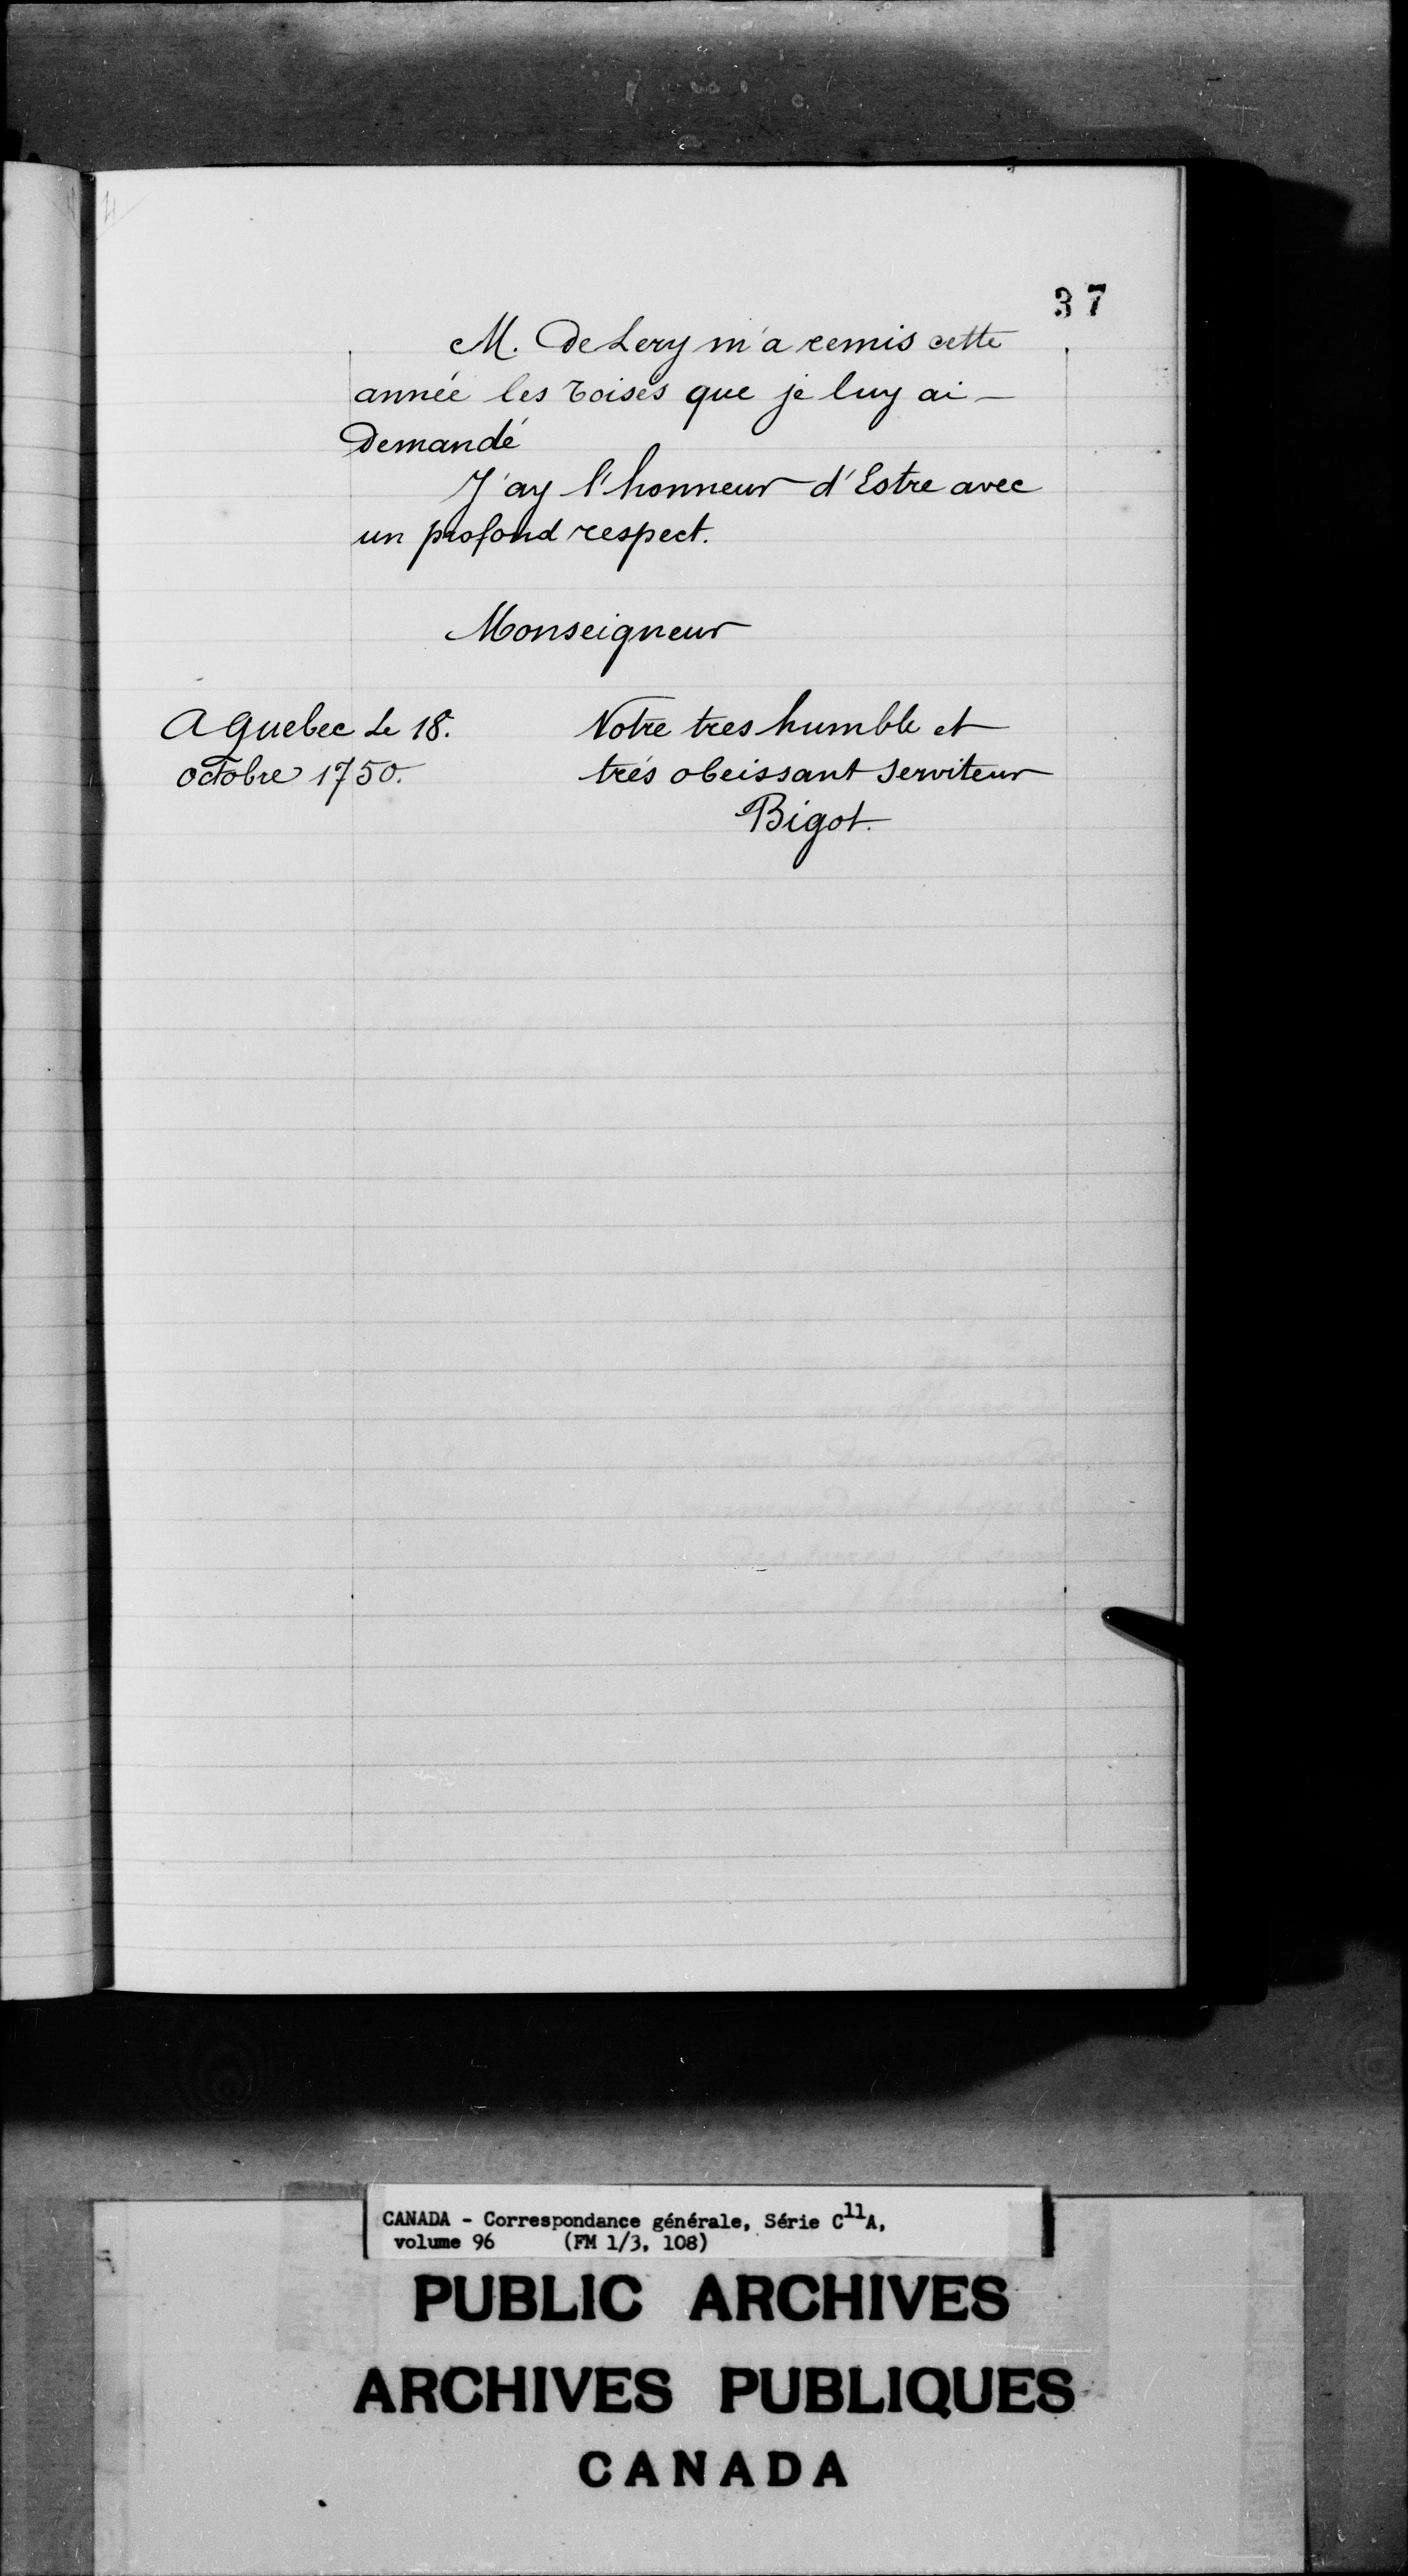 37
M. De Lery m'a remis cette
année les toisés que je luy ai
Demandé
J'ay l'honneur d'Estre avec
un profond respect.
Monseigneur
A Quebec Le 18.
octobre 1750.
Votre tres humble et
trés obeissant Serviteur
Bigot.
CANADA - Correspondance générale, Série C11A,
volume 96 (FM 1/3, 108)
PUBLIC ARCHIVES
ARCHIVES PUBLIQUES
CANADA